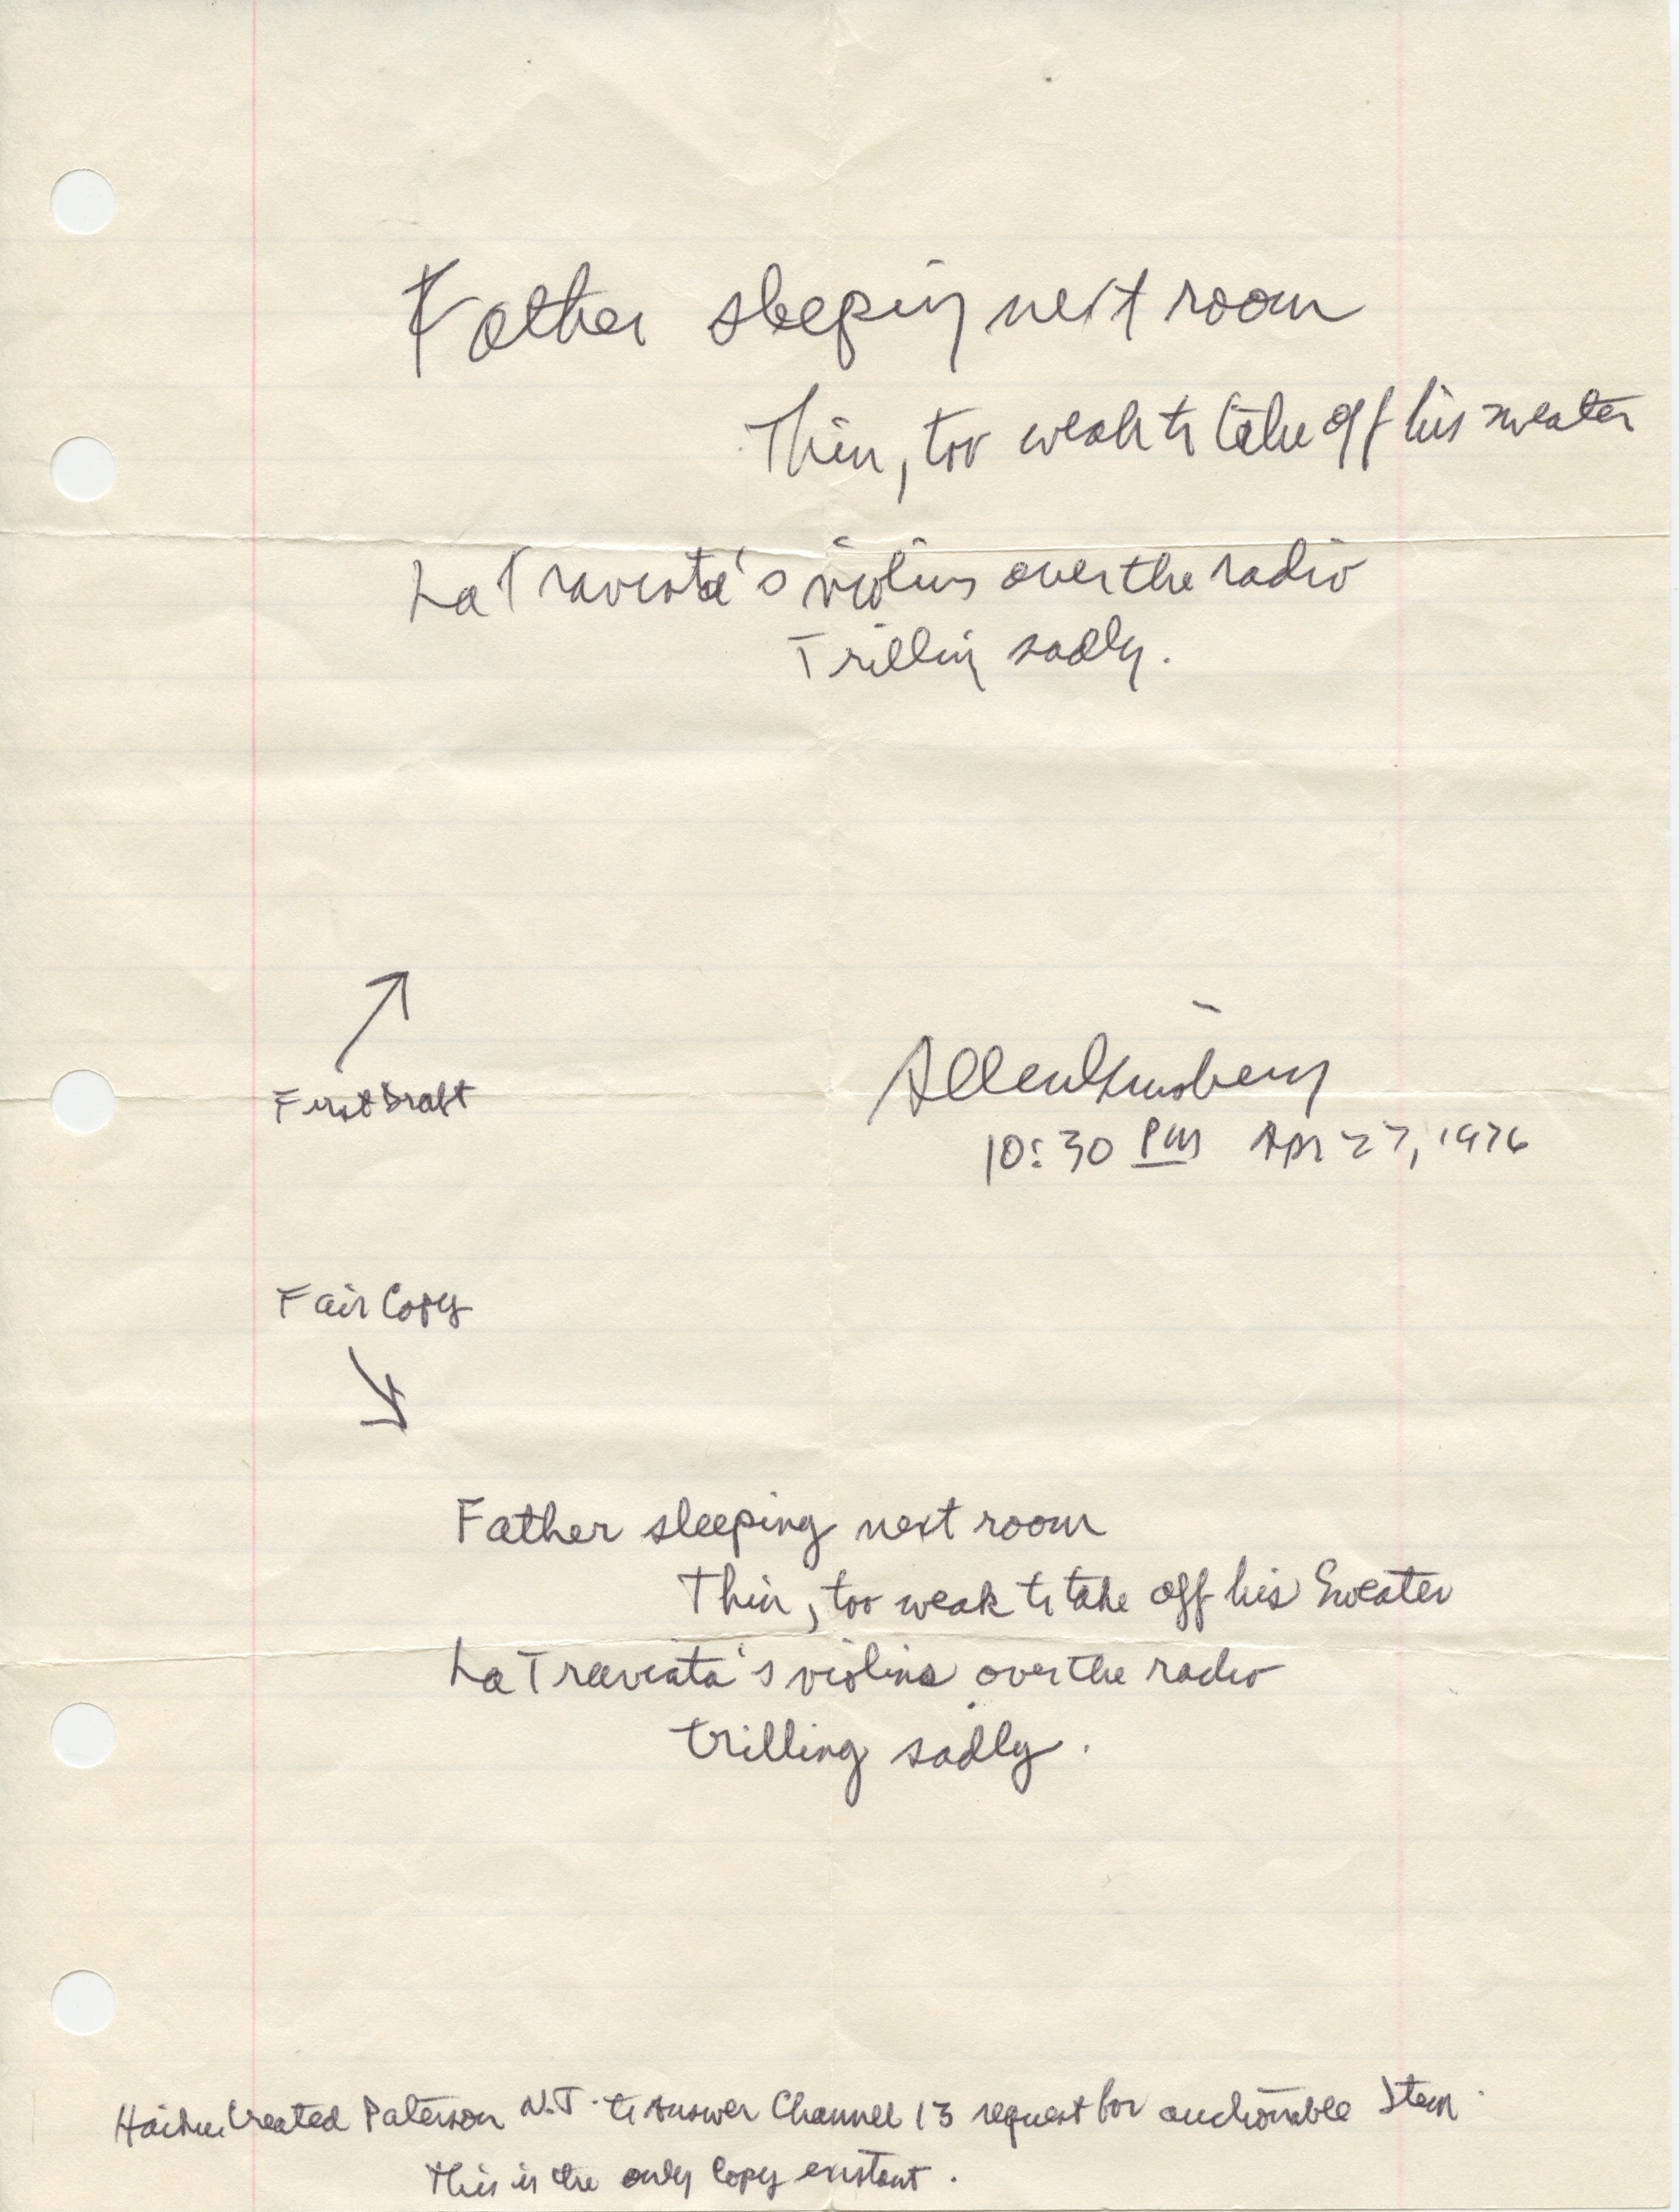 Father sleeping next room
Thin, too weak to take off his sweater
La Traviata's violins over the radio
Trilling sadly.
First Draft
Allen Ginsberg
10:30 PM Apr 27, 1976
Fair Copy
Father sleeping next room
Thin, too weak to take off his Sweater
La Traviata's violins over the radio
trilling sadly.
Haiku Created Paterson N.J. to answer Channel 13 request for auctionable Item.
This is the only Copy existant.